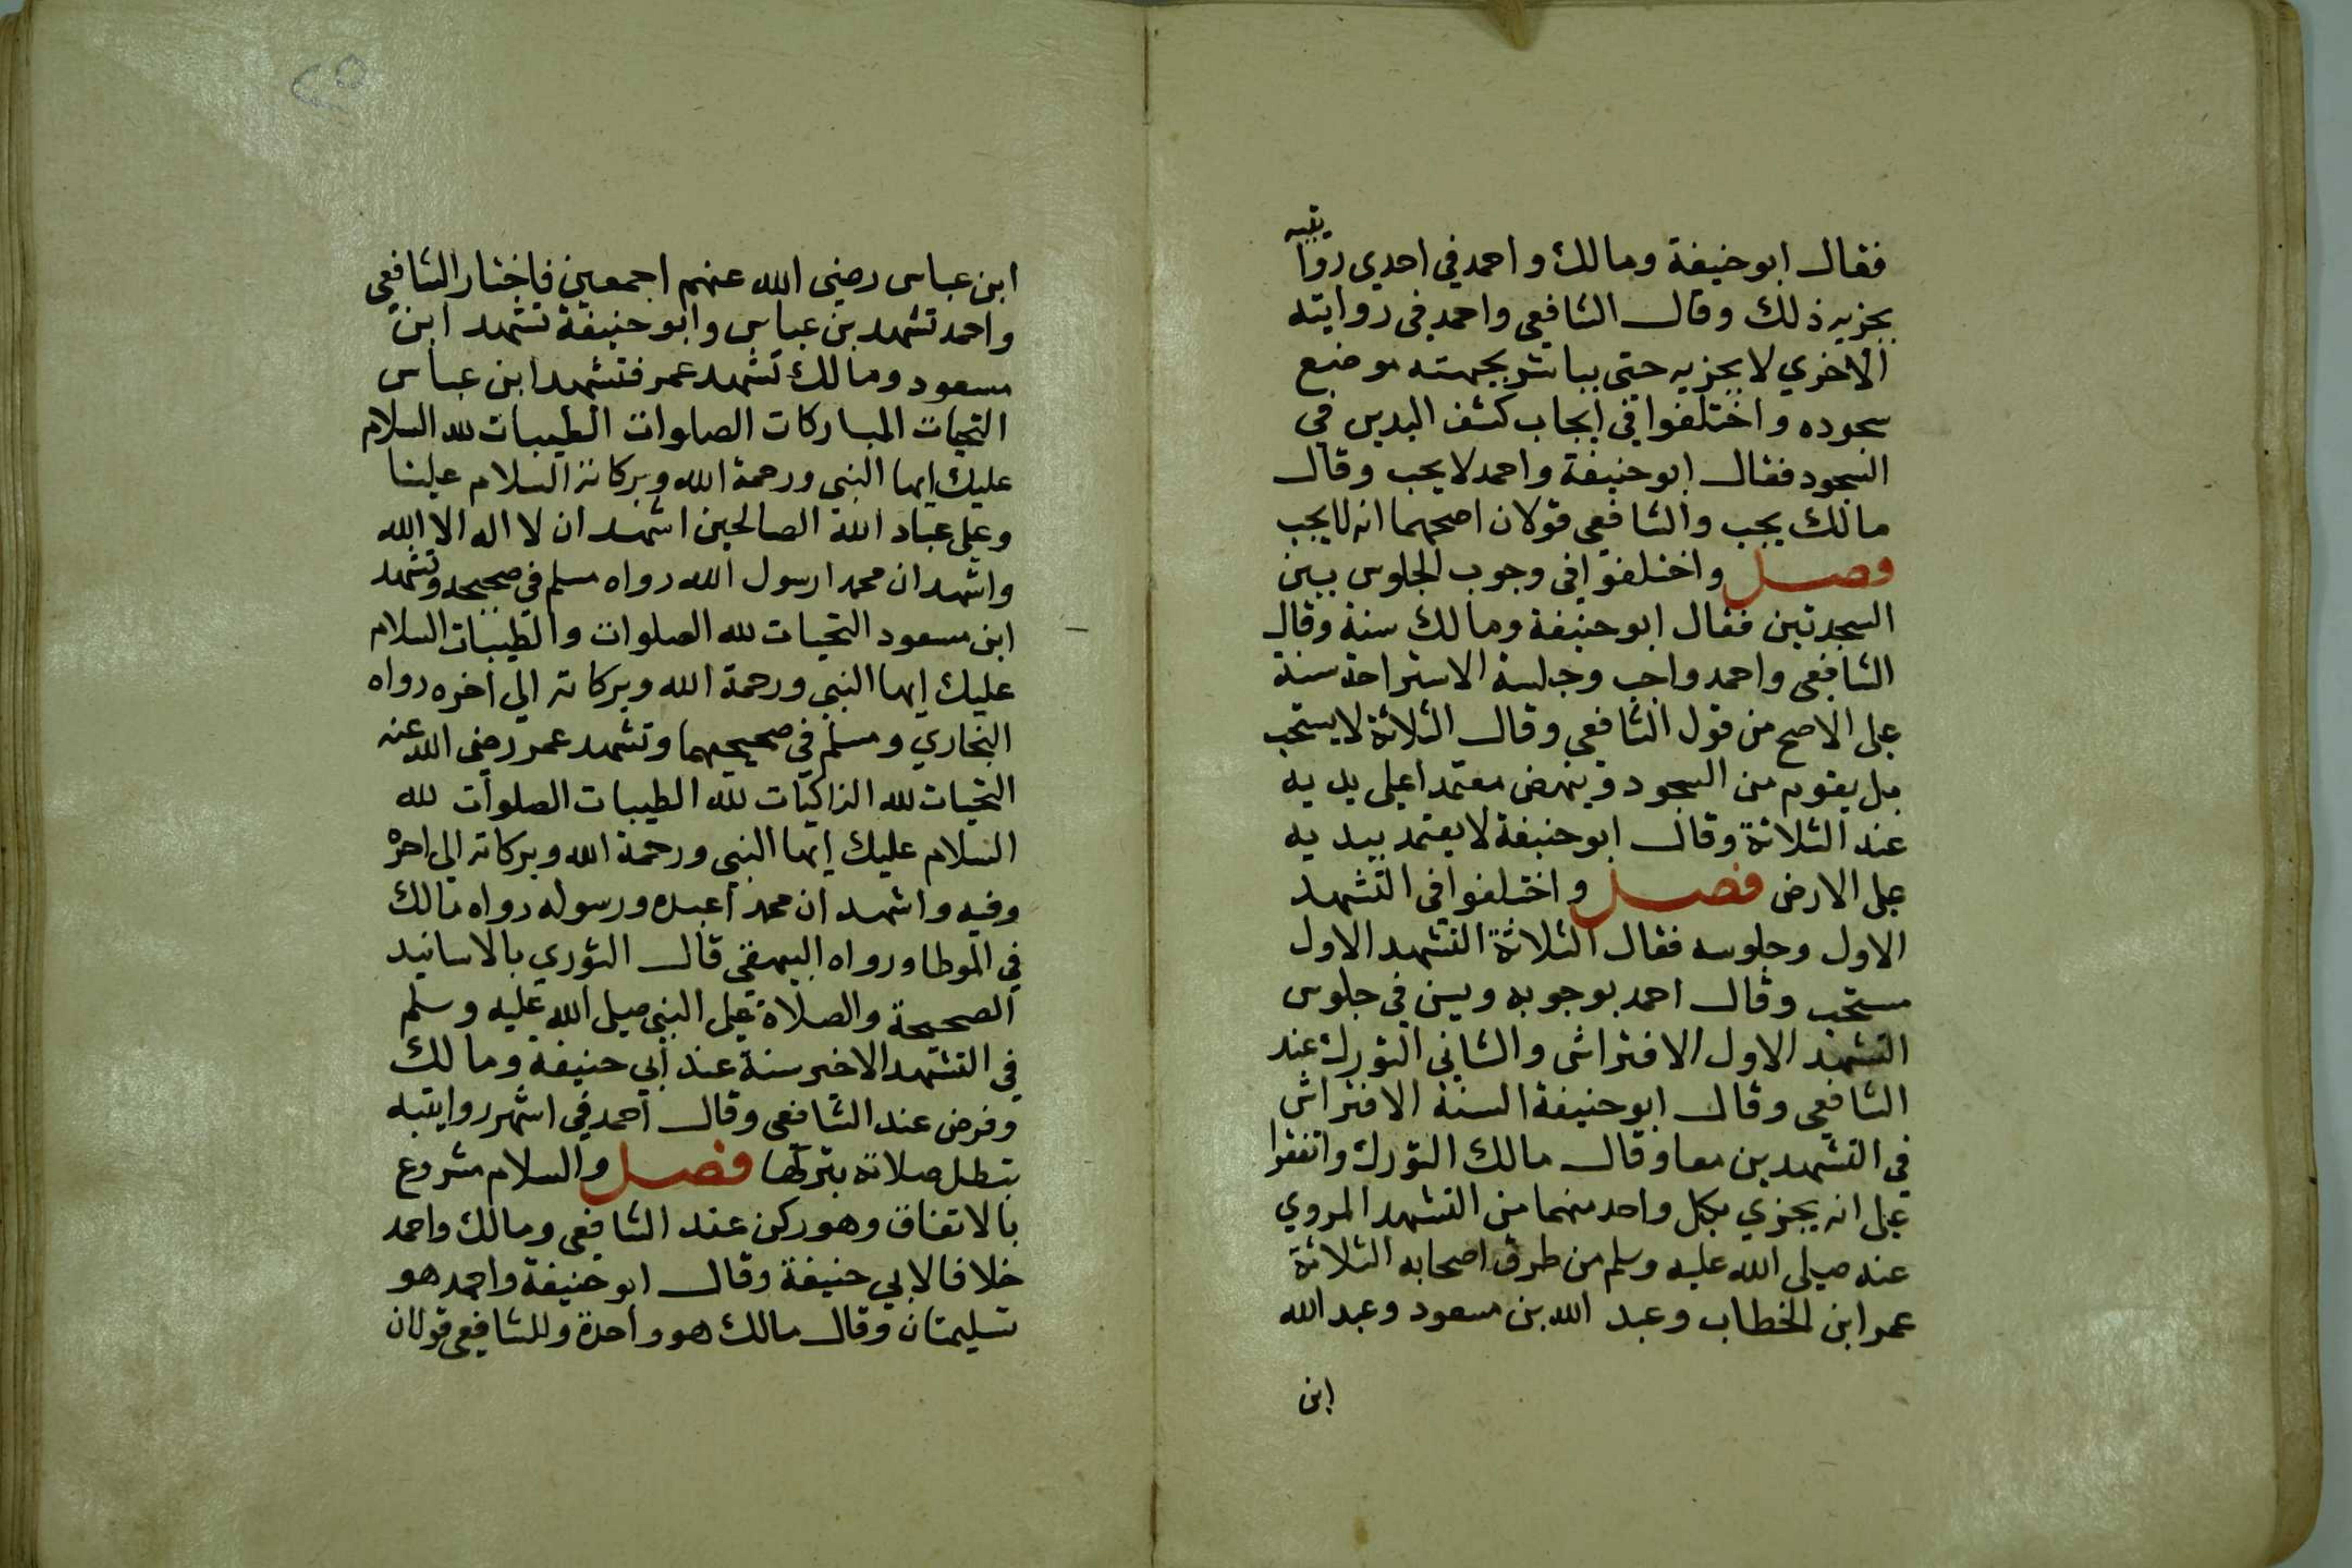 فقال ابو حنيفة ومالك واحمد في احدي روايتيه
يجزيه ذلك وقال الشافعي واحمد في روايته
الاخري لا يجزيه حتي يباشر بجبهته موضع
سجوده واختلفوا في ايجاب كشف اليدين في
السجود فقال ابو حنيفة واحمد لا يجب وقال
مالك يجب والشافعي قولان اصحهما انه لا يجب
فصل واختلفوا في وجوب الجلوس بين
السجدتين فقال ابو حنيفة ومالك سنة وقال
الشافعي واحمد واجب وجلسة الاستراحة سنة
علي الاصح من قول الشافعي وقال الثلاثة لا يستحب
بل يقوم من السجود وينهض معتمدا علي يديه
عند الثلاثة وقال ابو حنيفة لا يعتمد بيديه
علي الارض فصل واختلفوا في التشهد
الاول وجلوسه فقال الثلاثة التشهد الاول
مستحب وقال احمد بوجوبه ويسن في جلوس
التشهد الاول الافتراش والثاني التورك عند
الشافعي وقال ابو حنيفة السنة الافتراش
في التشهدين معا وقال مالك التورك واتفقوا
علي انه يجزي بكل واحد منهما من التشهد المروي
عنه صلي الله عليه وسلم من طرق اصحابه الثلاثة
عمر ابن الخطاب وعبد الله بن مسعود وعبد الله
ابن
٢٥
ابن عباس رضي الله عنهم اجمعين فاختار الشافعي
واحمد تشهد بن عباس وابو حنيفة تشهد ابن
مسعود ومالك تشهد عمر فتشهد ابن عباس
التحيات المباركات الصلوات الطيبات لله السلام
عليك ايها النبي ورحمة الله وبركاته السلام علينا
وعلي عباد الله الصالحين اشهد ان لا اله الا الله
واشهد ان محمدا رسول الله رواه مسلم في صحيحه وتشهد
ابن مسعود التحيات لله الصلوات والطيبات السلام
عليك ايها النبي ورحمة الله وبركاته الي اخره رواه
البخاري ومسلم في صحيحيهما وتشهد عمر رضي الله عنه
التحيات لله الزاكيات لله الطيبات الصلوات لله
السلام عليك ايها النبي ورحمة الله وبركاته الي اخره
وفيه واشهد ان محمدا عبده ورسوله رواه مالك
في الموطا ورواه البيهقي قال الثوري بالاسانيد
الصحيحة والصلاة علي النبي صلي الله عليه وسلم
في التشهد الاخير سنة عند ابي حنيفة ومالك
وفرض عند الشافعي وقال احمد في اشهر روايتيه
تبطل صلاته بتركها فصل والسلام مشروع
بالاتفاق وهو ركن عند الشافعي ومالك واحمد
خلافا لابي حنيفة وقال ابو حنيفة واحمد هو
تسليمتان وقال مالك هو واحدة وللشافعي قولان